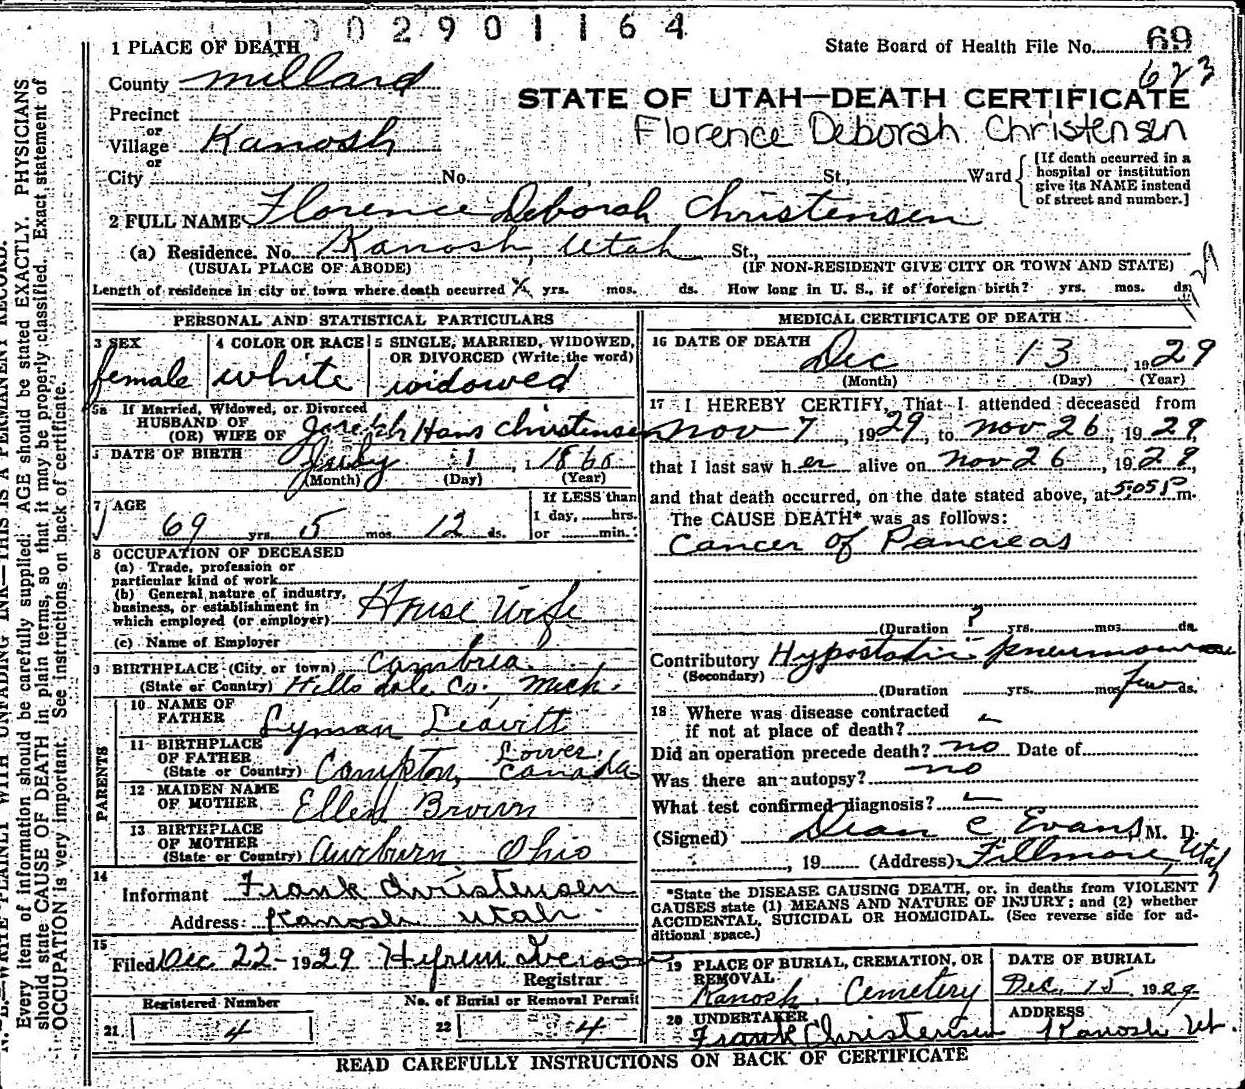 1 0 0 2 9 0 1 1 6 4
1 PLACE OF DEATH
State Board of Health File No. 69
623
County Millard
STATE OF UTAH—DEATH CERTIFICATE
Precinct
or
Florence Deborah Christensen
Village Kanosh
or
City No. , St., Ward
[If death occurred in a
hospital or institution
give its NAME instead
of street and number.]
2 FULL NAME Florence Deborah Christensen
(a) Residence. No. Kanosh, Utah St.,
(USUAL PLACE OF ABODE) (IF NON-RESIDENT GIVE CITY OR TOWN AND STATE)
Length of residence in city or town where death occurred yrs. mos. ds. How long in U. S., if of foreign birth? yrs. mos. ds.
PERSONAL AND STATISTICAL PARTICULARS
3 SEX
female
4 COLOR OR RACE
white
5 SINGLE, MARRIED, WIDOWED,
OR DIVORCED (Write the word)
widowed
5a If Married, Widowed, or Divorced
HUSBAND OF
(OR) WIFE OF Joseph Hans Christensen
DATE OF BIRTH July 1, 1860
(Month) (Day) (Year)
7 AGE
69 yrs. 5 mos. 12 ds.
If LESS than
1 day, hrs.
or min.
8 OCCUPATION OF DECEASED
(a) Trade, profession or
particular kind of work
(b) General nature of industry,
business, or establishment in
which employed (or employer) House Wife
(c) Name of Employer
9 BIRTHPLACE (City or town) Cambria
(State or Country) Hillsdale Co. Mich.
PARENTS
10 NAME OF
FATHER Lyman Leavitt
11 BIRTHPLACE
OF FATHER
(State or Country) Compton, Lower Canada
12 MAIDEN NAME
OF MOTHER Ellen Brown
13 BIRTHPLACE
OF MOTHER
(State or Country) Aurburn Ohio
14
Informant Frank Christensen
Address: Kanosh Utah.
15
Filed Dec 22-1929
Registrar
Registered Number
21 4
No. of Burial or Removal Permit
22 4
MEDICAL CERTIFICATE OF DEATH
16 DATE OF DEATH
Dec 13, 1929
(Month) (Day) (Year)
17 I HEREBY CERTIFY, That I attended deceased from
Nov 7, 1929, to Nov 26, 1929,
that I last saw her alive on Nov 26, 1929,
and that death occurred, on the date stated above, at 5:05 P m.
The CAUSE DEATH* was as follows:
Cancer of Pancreas
(Duration ? yrs. mos. ds.
Contributory Hypostatic pneumonia
(Secondary)
(Duration yrs. mos. few ds.
18 Where was disease contracted
if not at place of death?
Did an operation precede death? no Date of
Was there an autopsy? no
What test confirmed diagnosis?
(Signed) Dean C Evans, M. D.
, 19 (Address) Fillmore, Utah
*State the DISEASE CAUSING DEATH, or, in deaths from VIOLENT
CAUSES state (1) MEANS AND NATURE OF INJURY; and (2) whether
ACCIDENTAL, SUICIDAL OR HOMICIDAL. (See reverse side for ad-
ditional space.)
19 PLACE OF BURIAL, CREMATION, OR
REMOVAL
Kanosh. Cemetery
DATE OF BURIAL
Dec. 15 1929
20 UNDERTAKER
Frank Christensen
ADDRESS
Kanosh Ut.
READ CAREFULLY INSTRUCTIONS ON BACK OF CERTIFICATE
WRITE PLAINLY WITH UNFADING INK—THIS IS A PERMANENT RECORD.
Every item of information should be carefully supplied. AGE should be stated EXACTLY. PHYSICIANS
should state CAUSE OF DEATH in plain terms, so that it may be properly classified. Exact statement of
OCCUPATION is very important. See instructions on back of certificate.